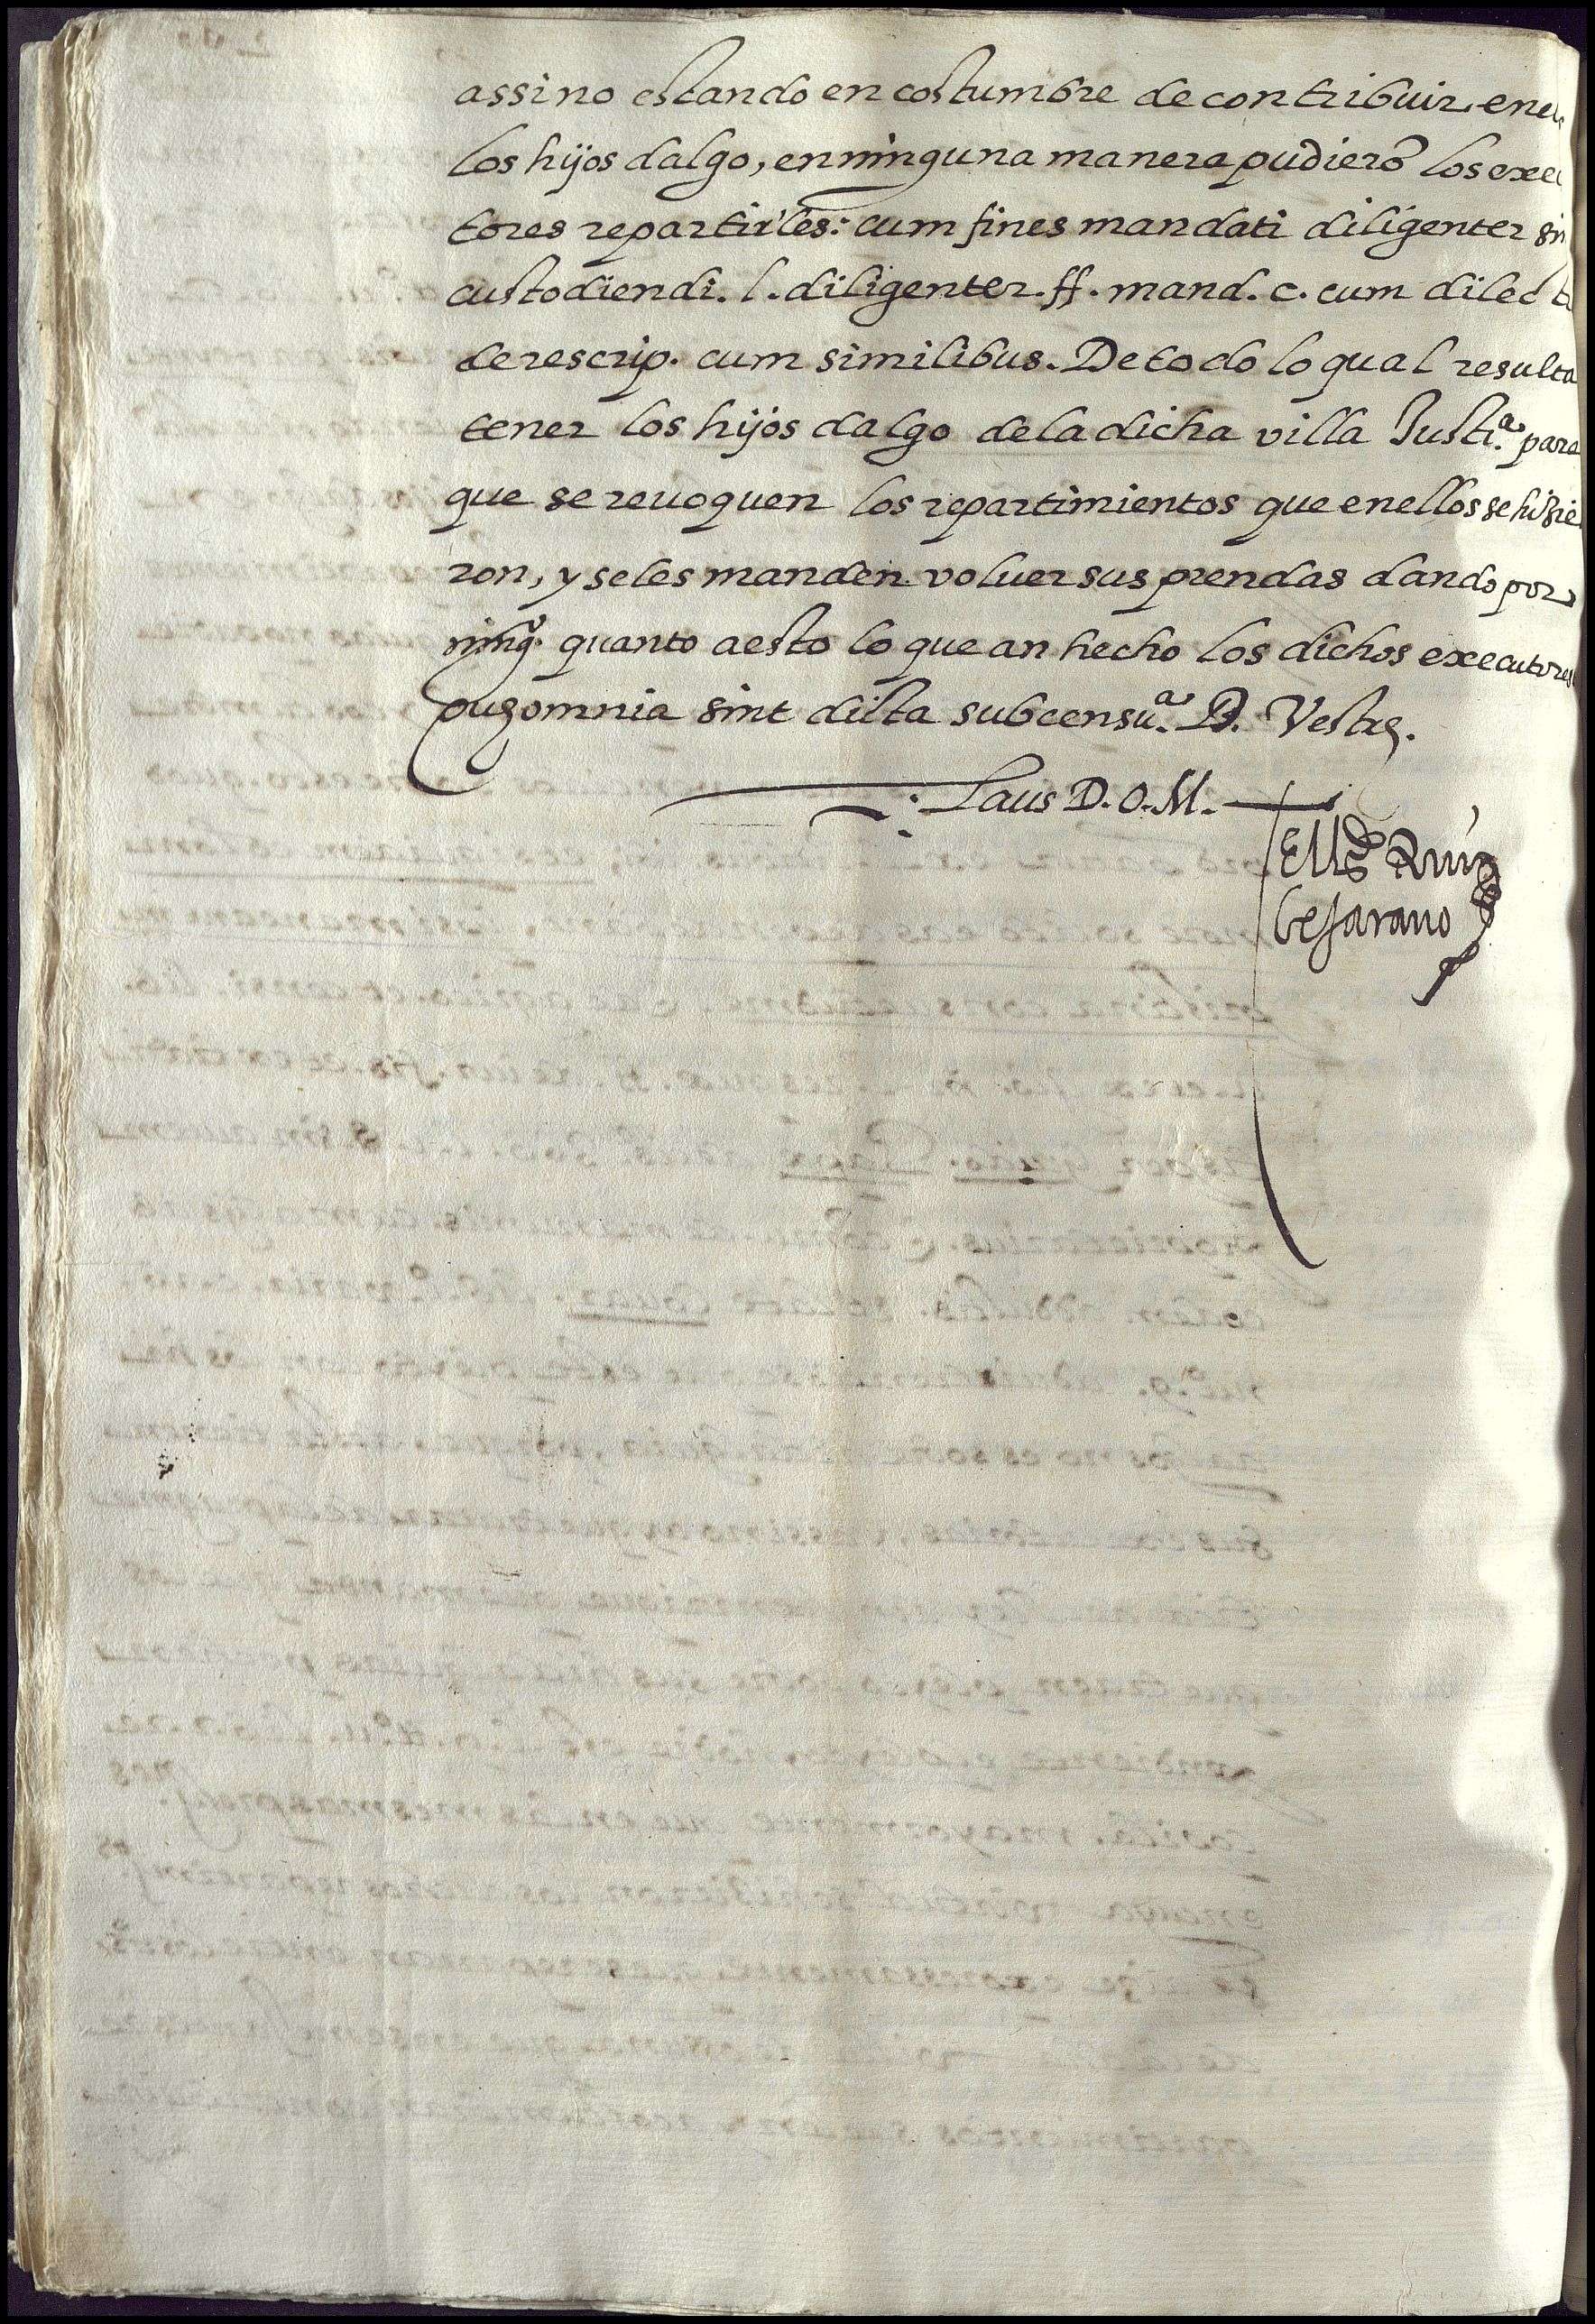 assi no estando en costumbre de contribuir en
los hijos dalgo, en ninguna manera pudierõ los exe
tores repartirles: cum fines mandati diligenter sin
custodiendi. l. diligenter. ff. mand. c. cum dilect
de rescrip. cum similibus. De todo lo qual resulta
tener los hijos dalgo de la dicha villa Justi.ª para
que se reuoquen los repartimientos que en ellos se hizie
ron, y se les manden voluer sus prendas dando por
ning.º quanto a esto lo que an hecho los dichos executores
omnia sint dicta sub censu.ª D. Vestrę.
Laus D. O. M.
El l.do Ruiz
bejarano